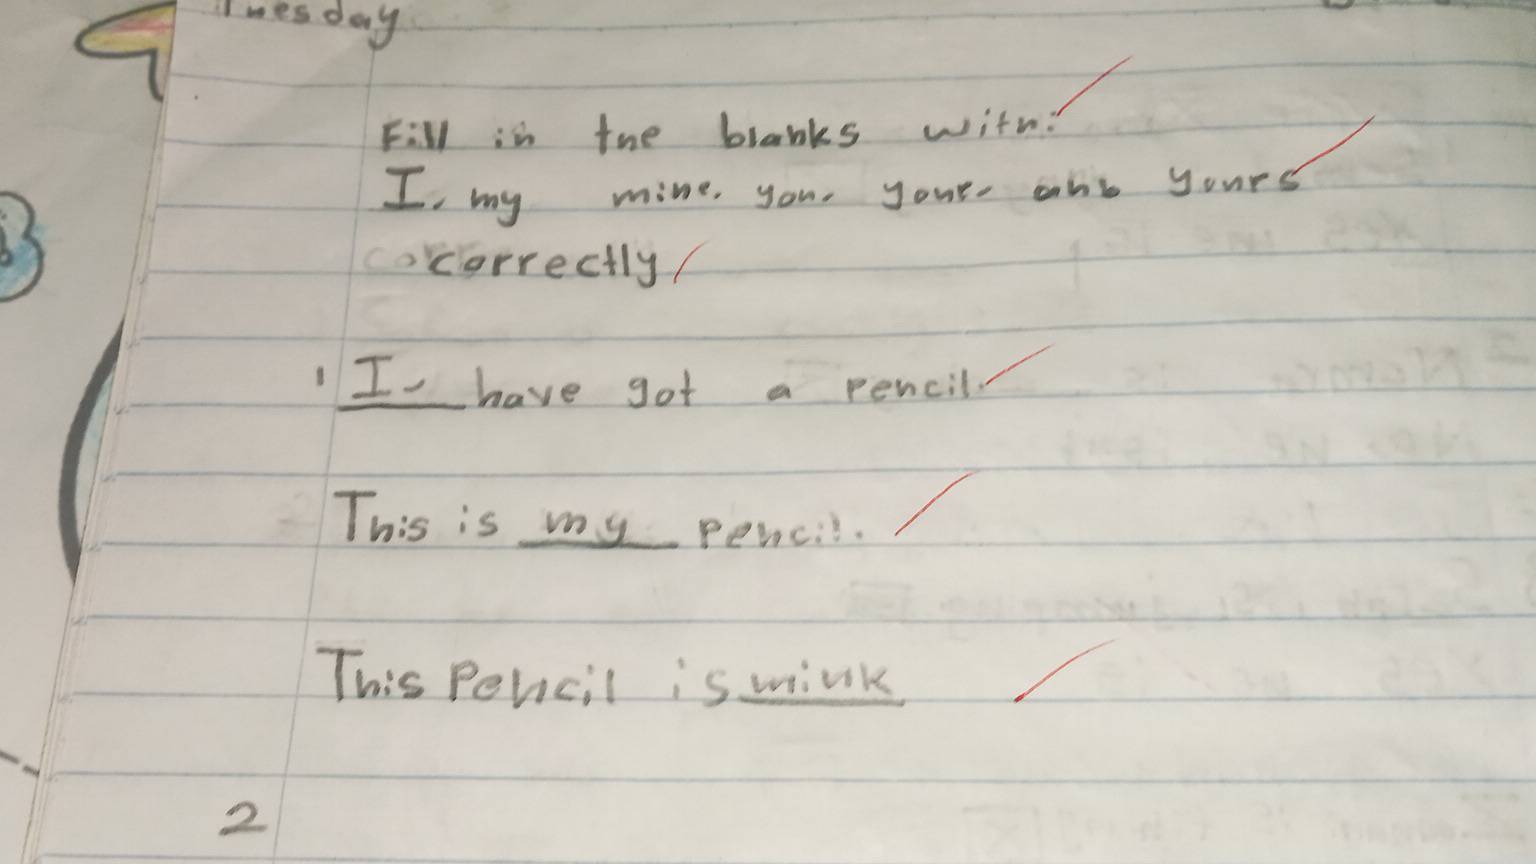 Tuesday
Fill in tne blanks witn:
I, my mine. you. your. anb yours
correctly
1 I have got a pencil.
This is my pencil.
This Pencil is mink
2